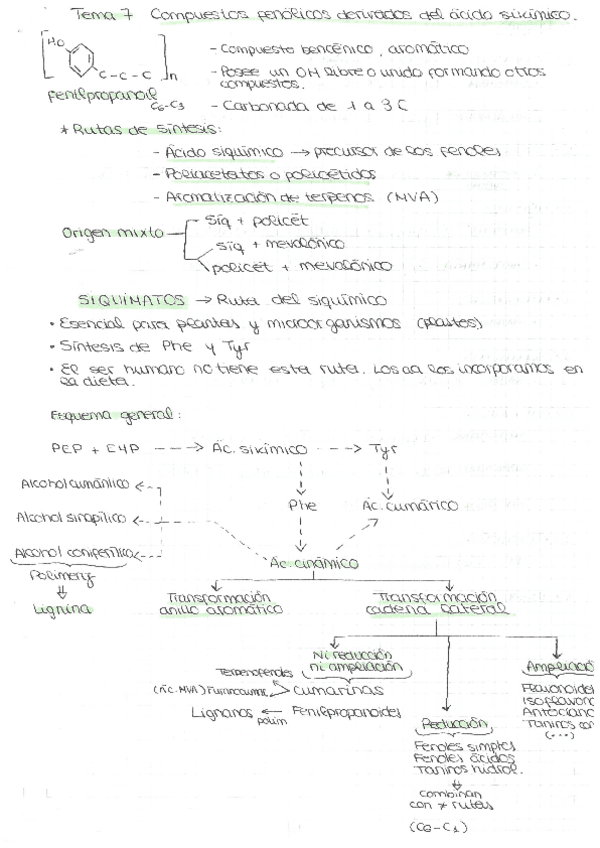 Tema 7 Compuestos fenólicos derivados del ácido sikímico.
HO
C-C-C
n
Fenilpropanoil
C6-C3
- Compuesto bencénico, aromático
- Posee un OH libre o unido formando otros
compuestos.
- Carbonada de 1 a 3 C
* Rutas de síntesis:
- Ácido siquímico → precursor de los fenoles
- Poliacetatos o policétidos
- Aromatización de terpenos (MVA)
Origen mixto
Siq + policét
Siq + mevalónico
policét + mevalónico
SIQUIMATOS → Ruta del siquímico
• Esencial para plantas y microorganismos (plastos)
• Síntesis de Phe y Tyr
• El ser humano no tiene esta ruta. Los aa los incorporamos en
la dieta.
Esquema general:
PEP + E4P ---> Ác. sikímico ---> Tyr
Alcohol cumarílico
Phe
Ác. cumárico
Alcohol sinapílico
Alcohol coniferílico
Ac. cinámico
Polimeriz
Lignina
Transformación
anillo aromático
Transformación
cadena lateral
Ni reducción
ni ampliación
Ampliació
Terpenofenoles
(Ác. MVA) Furanocumar
Cumarinas
Lignanos ← Fenilpropanoides
polim
Flavonoide
Isoflavono
Antociano
Taninos con
(...)
Reducción
Fenoles simples
Fenoles ácidos
Taninos hidrol.
combinan
con ≠ rutas
(C6-C1)